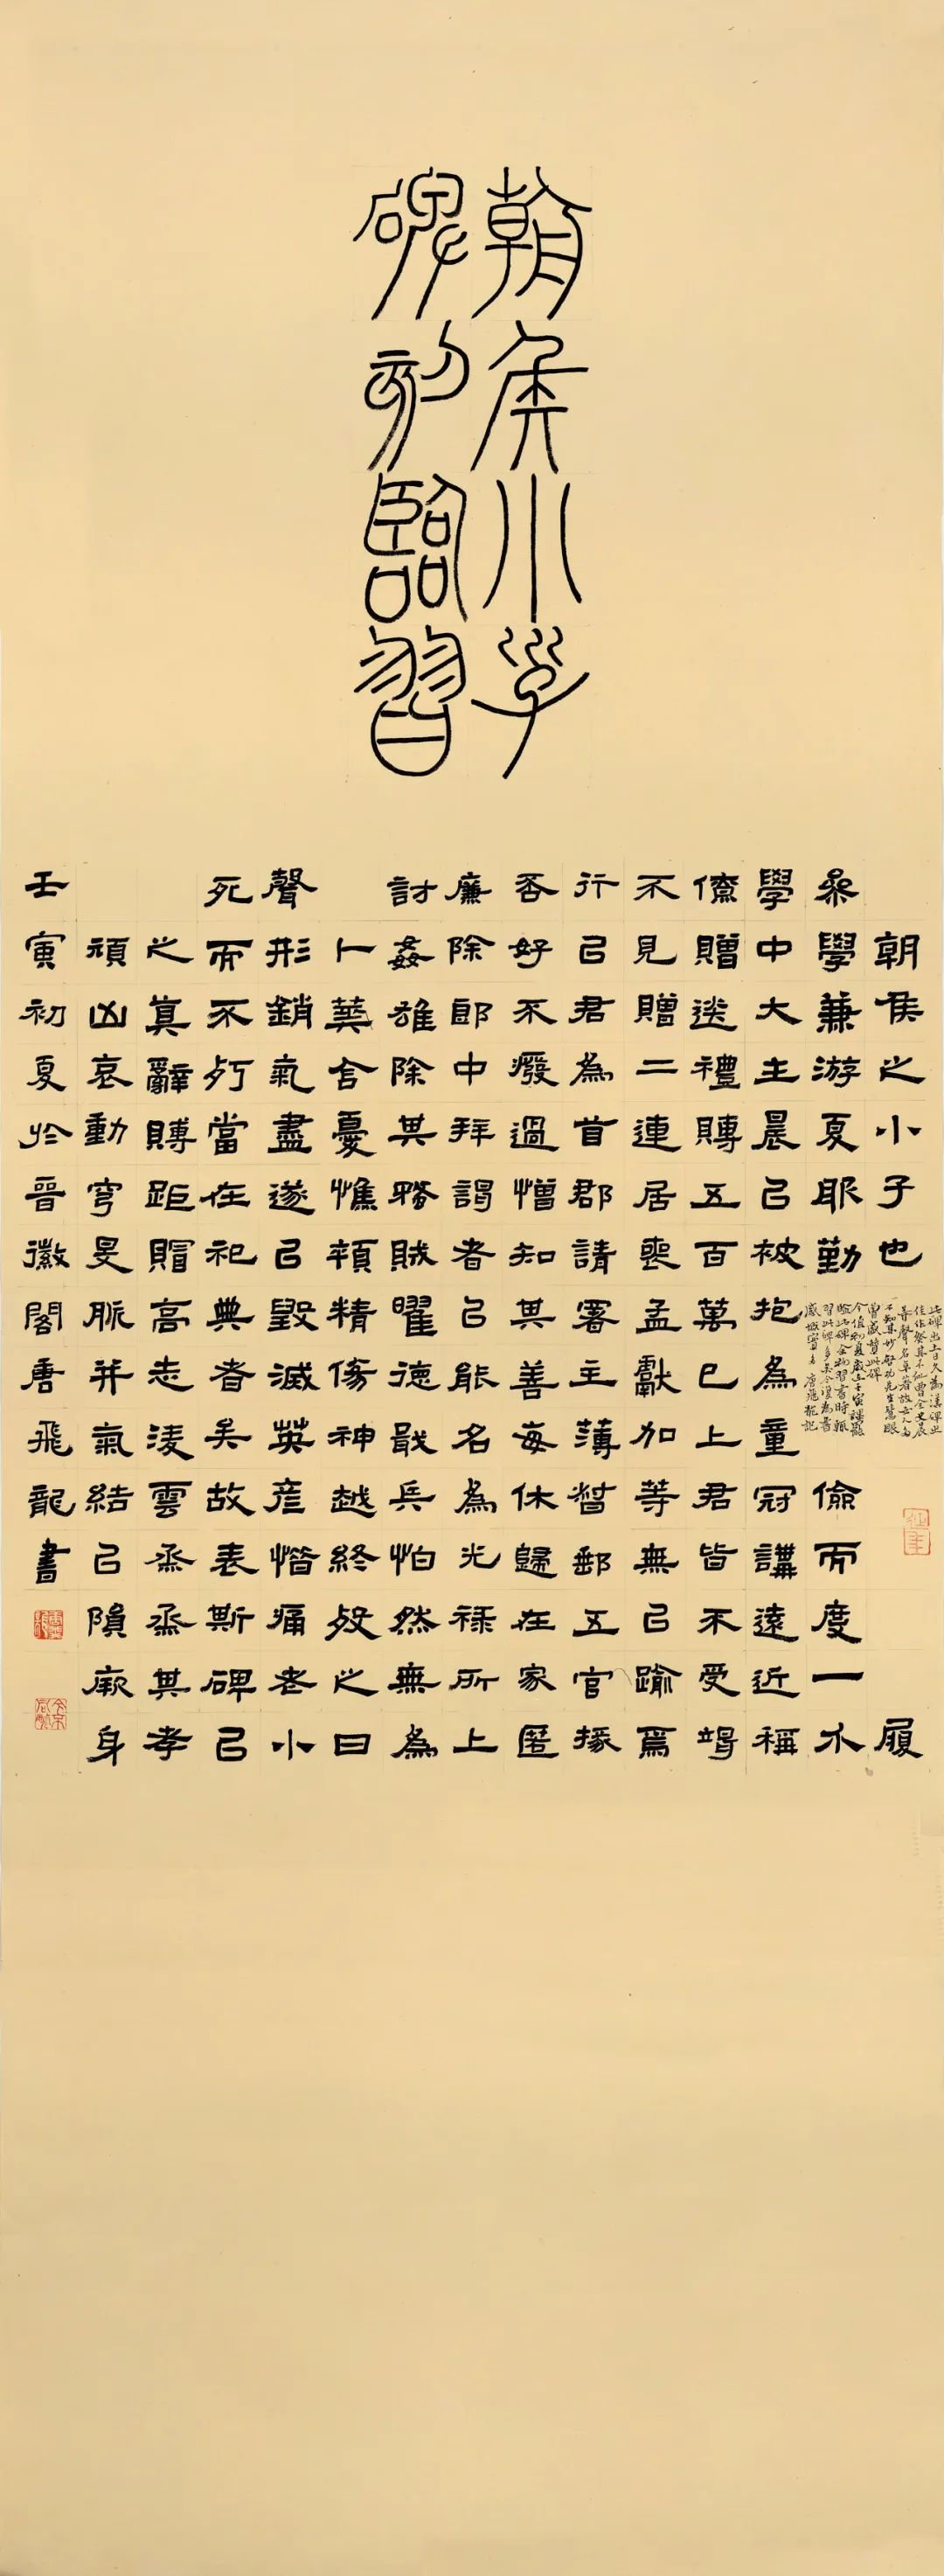 朝侯小子
碑初臨習
朝侯之小子也履
學兼游夏服勤儉而度一
學中大主晨㠯被抱為童冠講遠近稱
僚贈送禮賻五百萬已上君皆不受竭
不見贈二連居喪孟獻加等無㠯踰焉
行㠯君為首郡請署主薄督郵五官掾
否好不癈過憎知其善每休歸在家匿
廉除郎中拜謁者㠯能名為光祿所上
討姦雄除其蝥賊曜德戢兵怕然無為
卜葬含憂憔顇精傷神越終歿之日
聲形銷氣盡遂㠯毀滅英彥惜痛老小
死而不朽當在祀典者矣故表斯碑㠯
之冥辭賻距賵高志淩雲烝烝其孝
頑凶哀動穹旻脈并氣結㠯隕厥身
此碑出土日久為漢碑
唐飛龍記
壬寅初夏於晉徽閣唐飛龍書